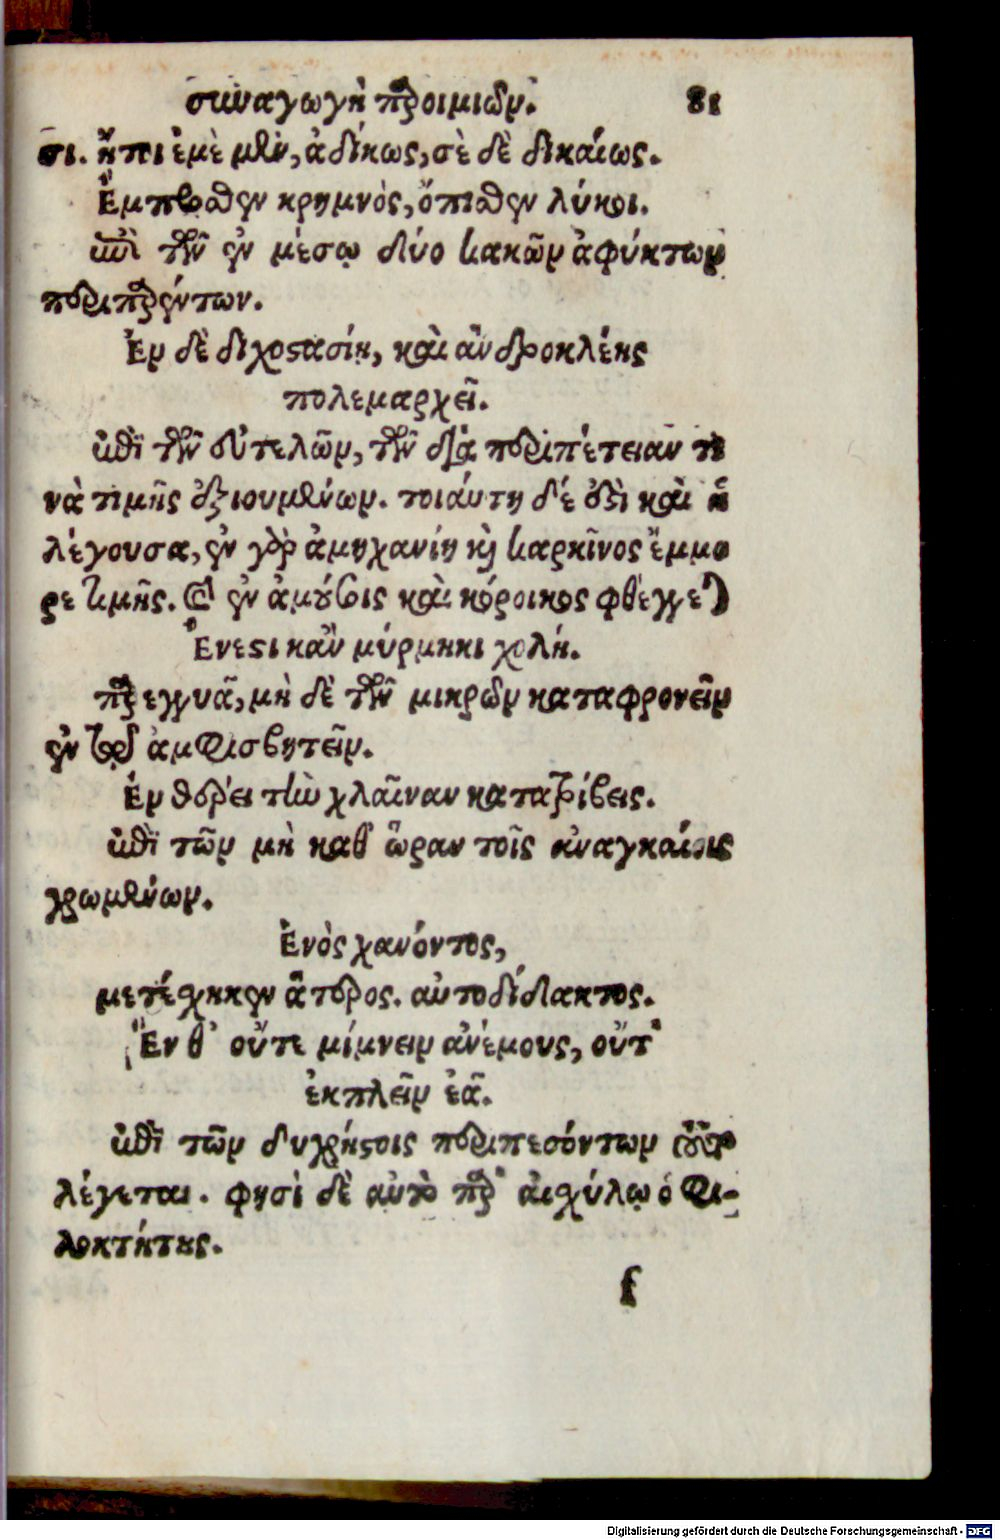 συναγωγὴ παροιμιῶν. 81
σι. ἤπι ἐμὲ μὲν, ἀδίκως, σὲ δὲ δικαίως.
Ἔμπροσθεν κρημνὸς, ὄπισθεν λύκοι.
ἐπὶ τῶν ἐν μέσῳ δύο κακῶν ἀφύκτων
παραπεσόντων.
Ἐν δὲ διχοστασίῃ, καὶ ἀνδροκλέης
πολεμαρχεῖ.
ἐπὶ τῶν εὐτελῶν, τῶν διὰ περιπέτειαν τι
νὰ τιμῆς ἀξιουμένων. τοιάυτη δέ ἐστι καὶ ἡ
λέγουσα, ἐν γὰρ ἀμηχανίῃ καὶ καρκῖνος ἔμμο
ρε τιμῆς. καὶ ἐν ἀμούσοις καὶ κόροικος φθέγγεται
Ἔνεστι κἂν μύρμηκι χολή.
παρεγγυᾶ, μὴ δὲ τῶν μικρῶν καταφρονεῖν
ἐν τῷ ἀμφισβητεῖν.
Ἐν θέρει τὴν χλαῖναν κατατρίβεις.
ἐπὶ τῶν μὴ καθ' ὥραν τοῖς ἀναγκαίοις
χρωμένων.
Ἑνὸς χανόντος,
μετέσχηκεν ἅτερος. αὐτοδίδακτος.
Ἔνθ' οὔτε μίμνειν ἀνέμους, οὔτ'
ἐκπλεῖν ἐᾷ.
ἐπὶ τῶν δυχρήστοις περιπεσόντων
λέγεται. φησὶ δὲ αὐτὸ παρ' αἰσχύλῳ ὁ Φι-
λοκτήτης.
f
Digitalisierung gefördert durch die Deutsche Forschungsgemeinschaft - DFG